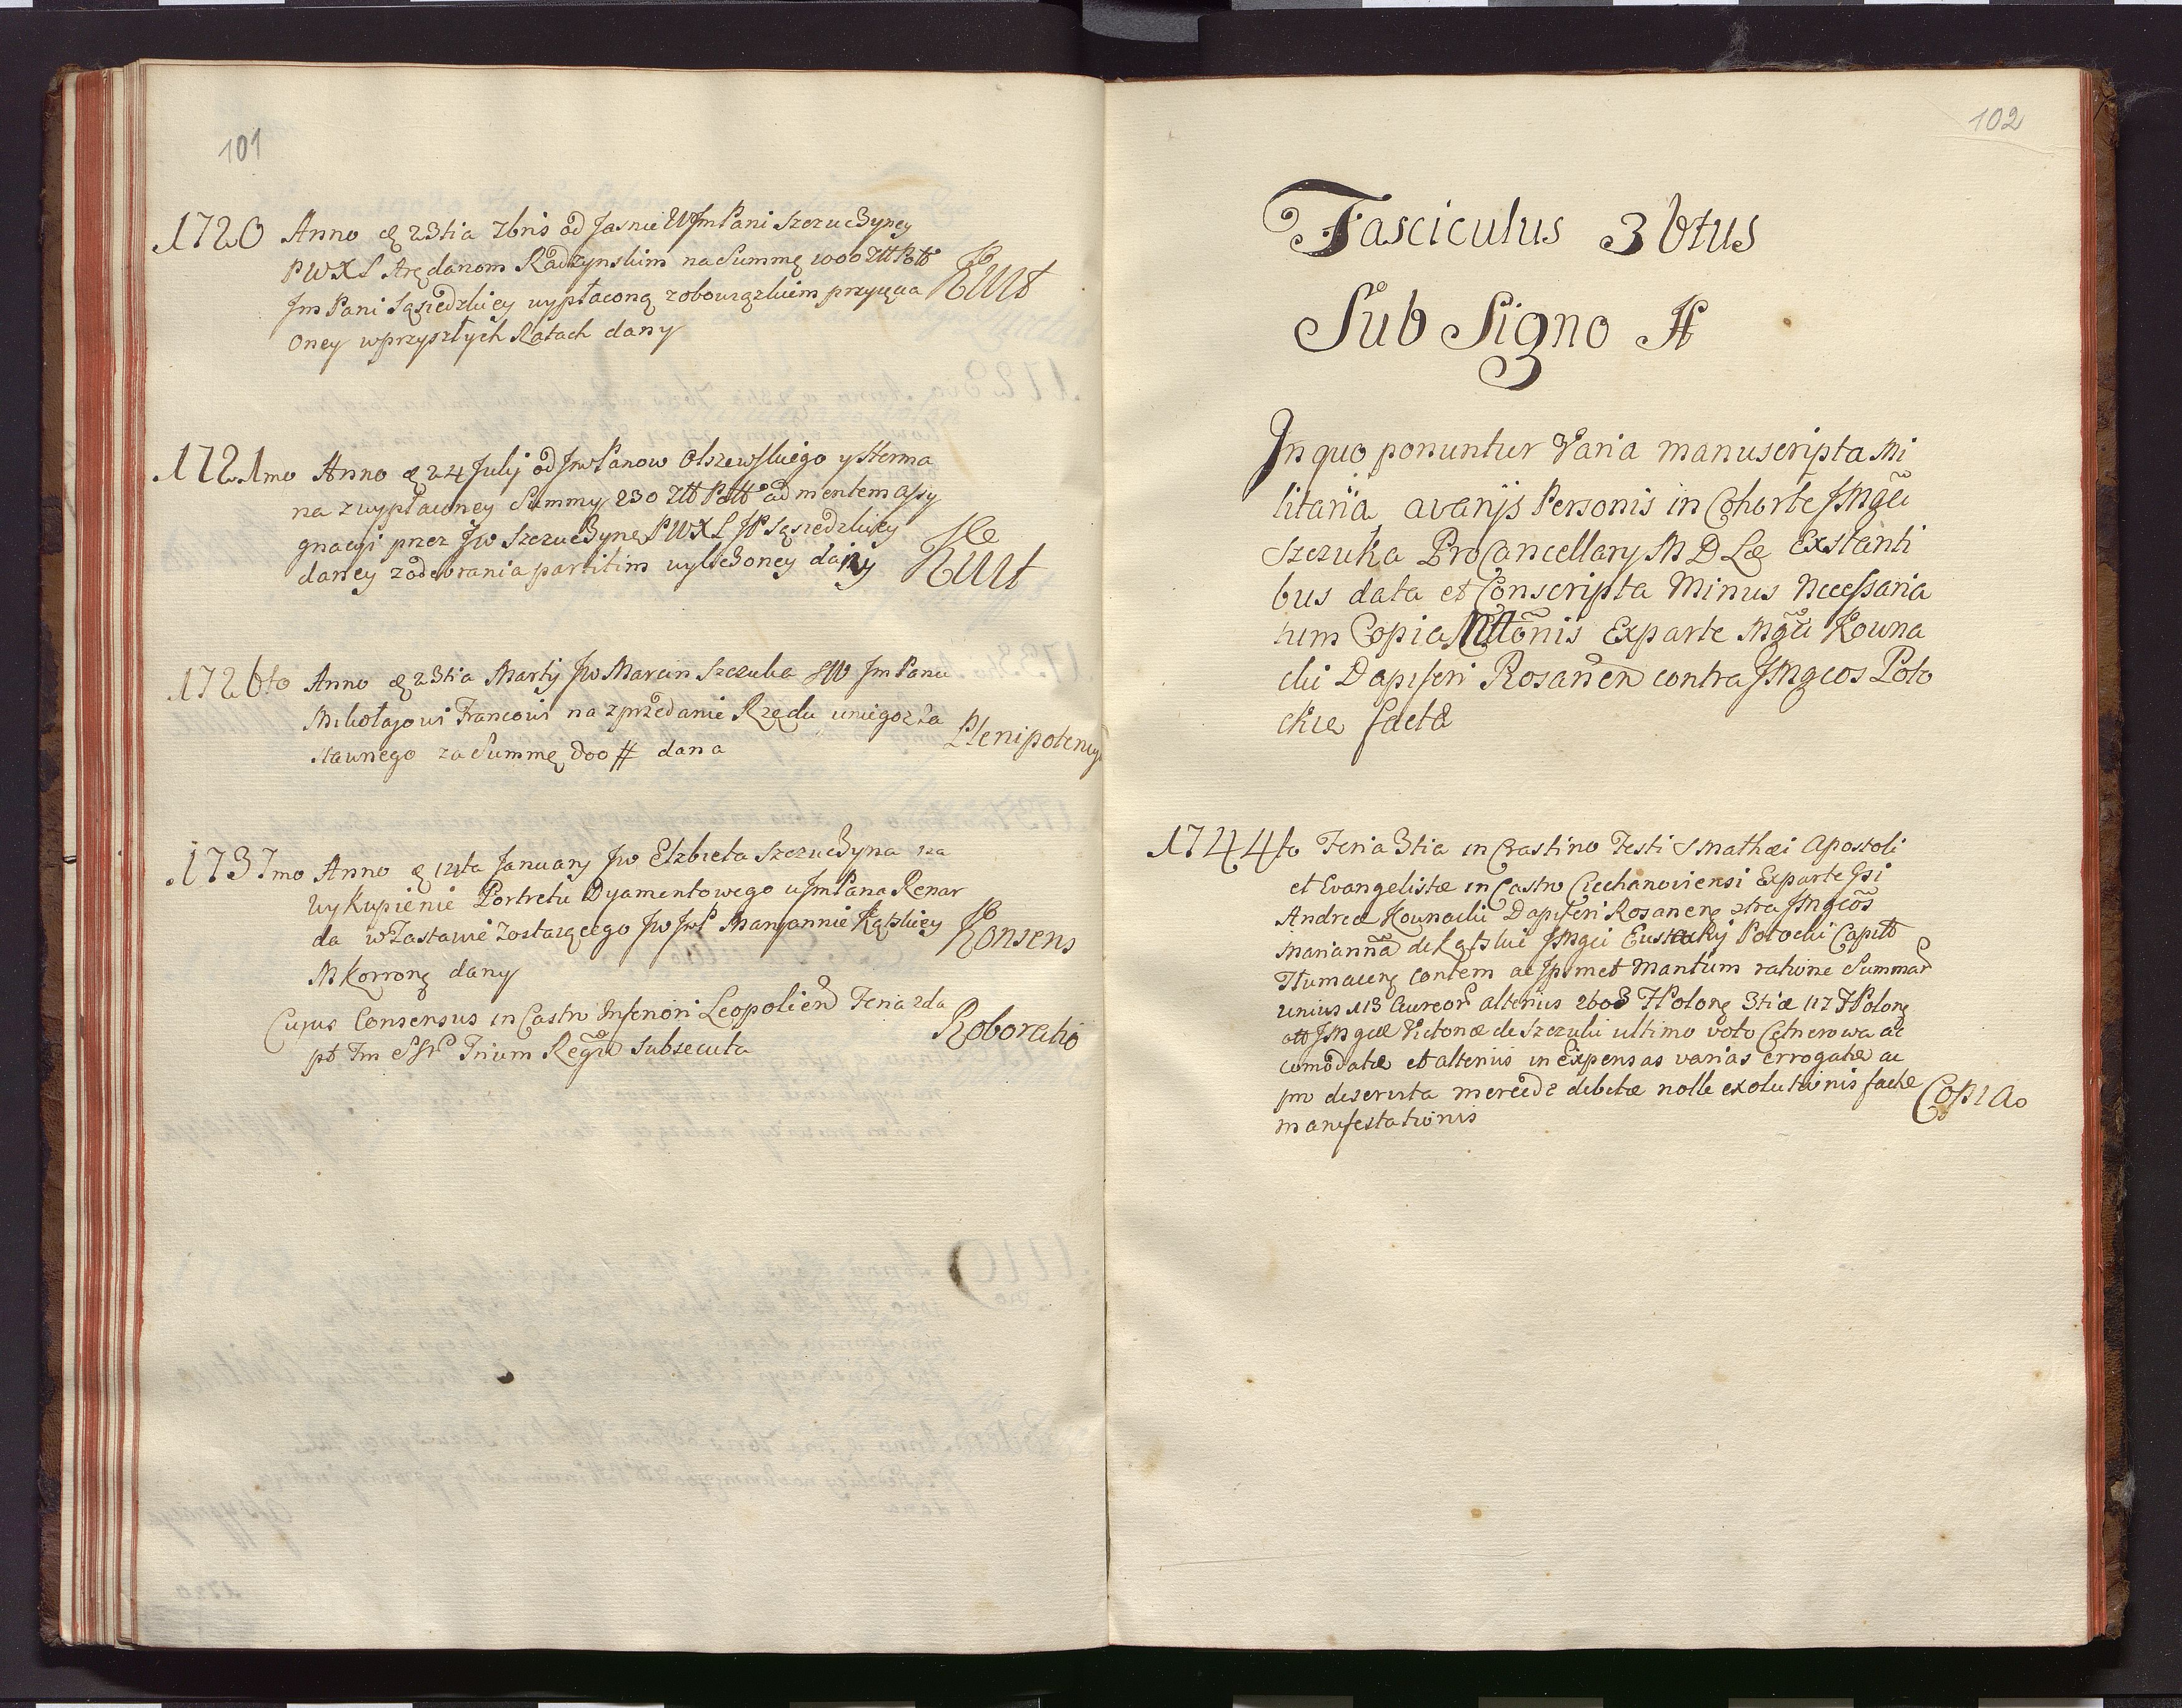 101
1720 Anno & 23tia 7bris od Jasnie WJmPani Szczuczyney
PWXL Arędarzom Radzynskim na Summę 1000 Ztt Poll
Jm Pani Sąsiedzkiey wypłaconą zobowiązkiem przyięcia Kwit
Oney wprzyszłych Ratach dany
1721mo Anno & 24 July od JwPanow Olszewskiego y Herma
na z wypłaconey Summy 230 Ztt Poltt ad mentem assy
gnacyi przez Jw Szczuczynę PWXL JP Sąsiedzkiey
daney zodebrania partitim wyliczoney dany Kwit
1726to Anno & 23tia Martij Jw Marcin Szczuka SW Jm Panu
Mikołajowi Francowi na zprzedanie Rzędu uniego za
stawnego za Summę 800 # dana Plenipotency
1737mo Anno & 14ta January Jw Elzbieta Szczuczyna na
Wykupienie Portretu Dyamentowego u JmPana Renar
da w Zastawie Zostaiącego Jw JwP Maryannie Kątskiey Konsens
M Korronę dany
Cujus Consensus in Castro Inferiori Leopolien Feria 2da
pt Fm SSr Trium Regũ subsecuta Roboratio
102
Fasciculus 36tus
Sub Signo H
In quo ponuntur Varia manuscripta Mi
litaria avarijs Personis in Cohorte JMgci
Szczuka ProCancellary M D Læ Existenti
bus data et Conscripta Minus Necessaria
tum Copia Mttõnis Ex parte Mgci Kowna
cki Dapiferi Rosanen contra JMgcos Poto
ckie facta
1744to Feria 3tia in Crastino Festi S Mathæi Apostoli
et Evangelistæ in Castro Ciechanoviensi Exparte Gsi
Andreæ Kownacki Dapiferi Rosanens ctra JMgcos
Mariannã de Kątskie JMgci Eustachy Potocki Capitt
Tłumacens Contem ac Ipsmet Maritum ratione Summar
unius 113 Aureor alterius 2603 FPolong 3tiæ 117 FPolong
att JMgcæ Victoriæ de Szczuki ultimo voto Cetnerowa ac
comodatæ et alterius in Expensas varias errogatæ ac
pro deservita mercede debitæ nolle exolutionis factæ Copia
manifestationis